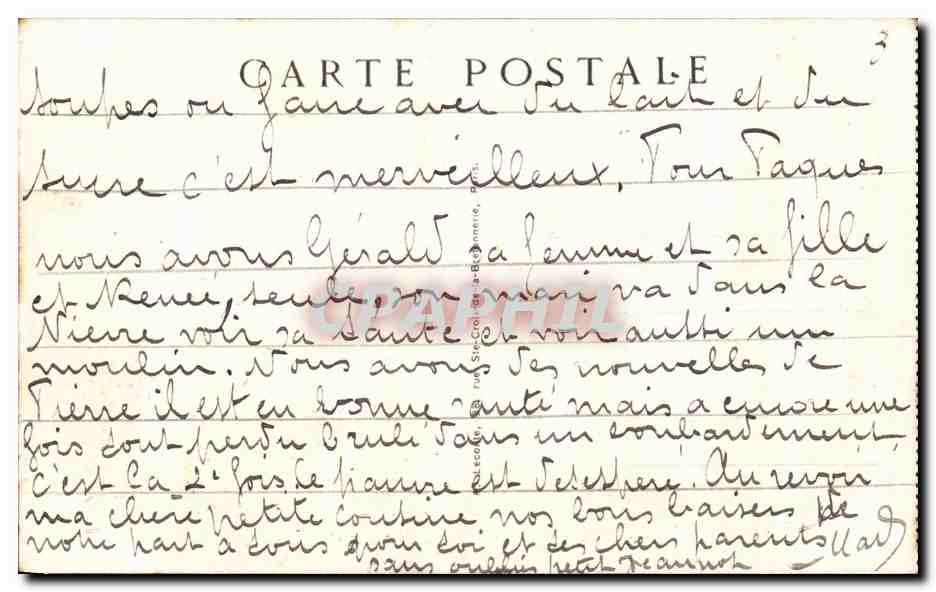 3
CARTE POSTALE
soupes ou faire avec du lait et du
sucre c'est merveilleux. Pour Paques
nous avons Gérald sa femme et sa fille
et Renée, seule, son mari va dans la
Nievre voir sa tante et voir aussi un
moulin. Nous avons des nouvelles de
Pierre il est en bonne santé mais a encore une
fois tout perdu brulé dans un bombardement
c'est la 2e fois. Le pauvre est desespéré. Au revoir
ma chère petite cousine nos bons baisers de
notre part a tous pour toi et tes chers parents
sans oublier petit Jeannot
rue Ste-Croix-de-la-Bretonnerie, Paris.
CPAPHIL